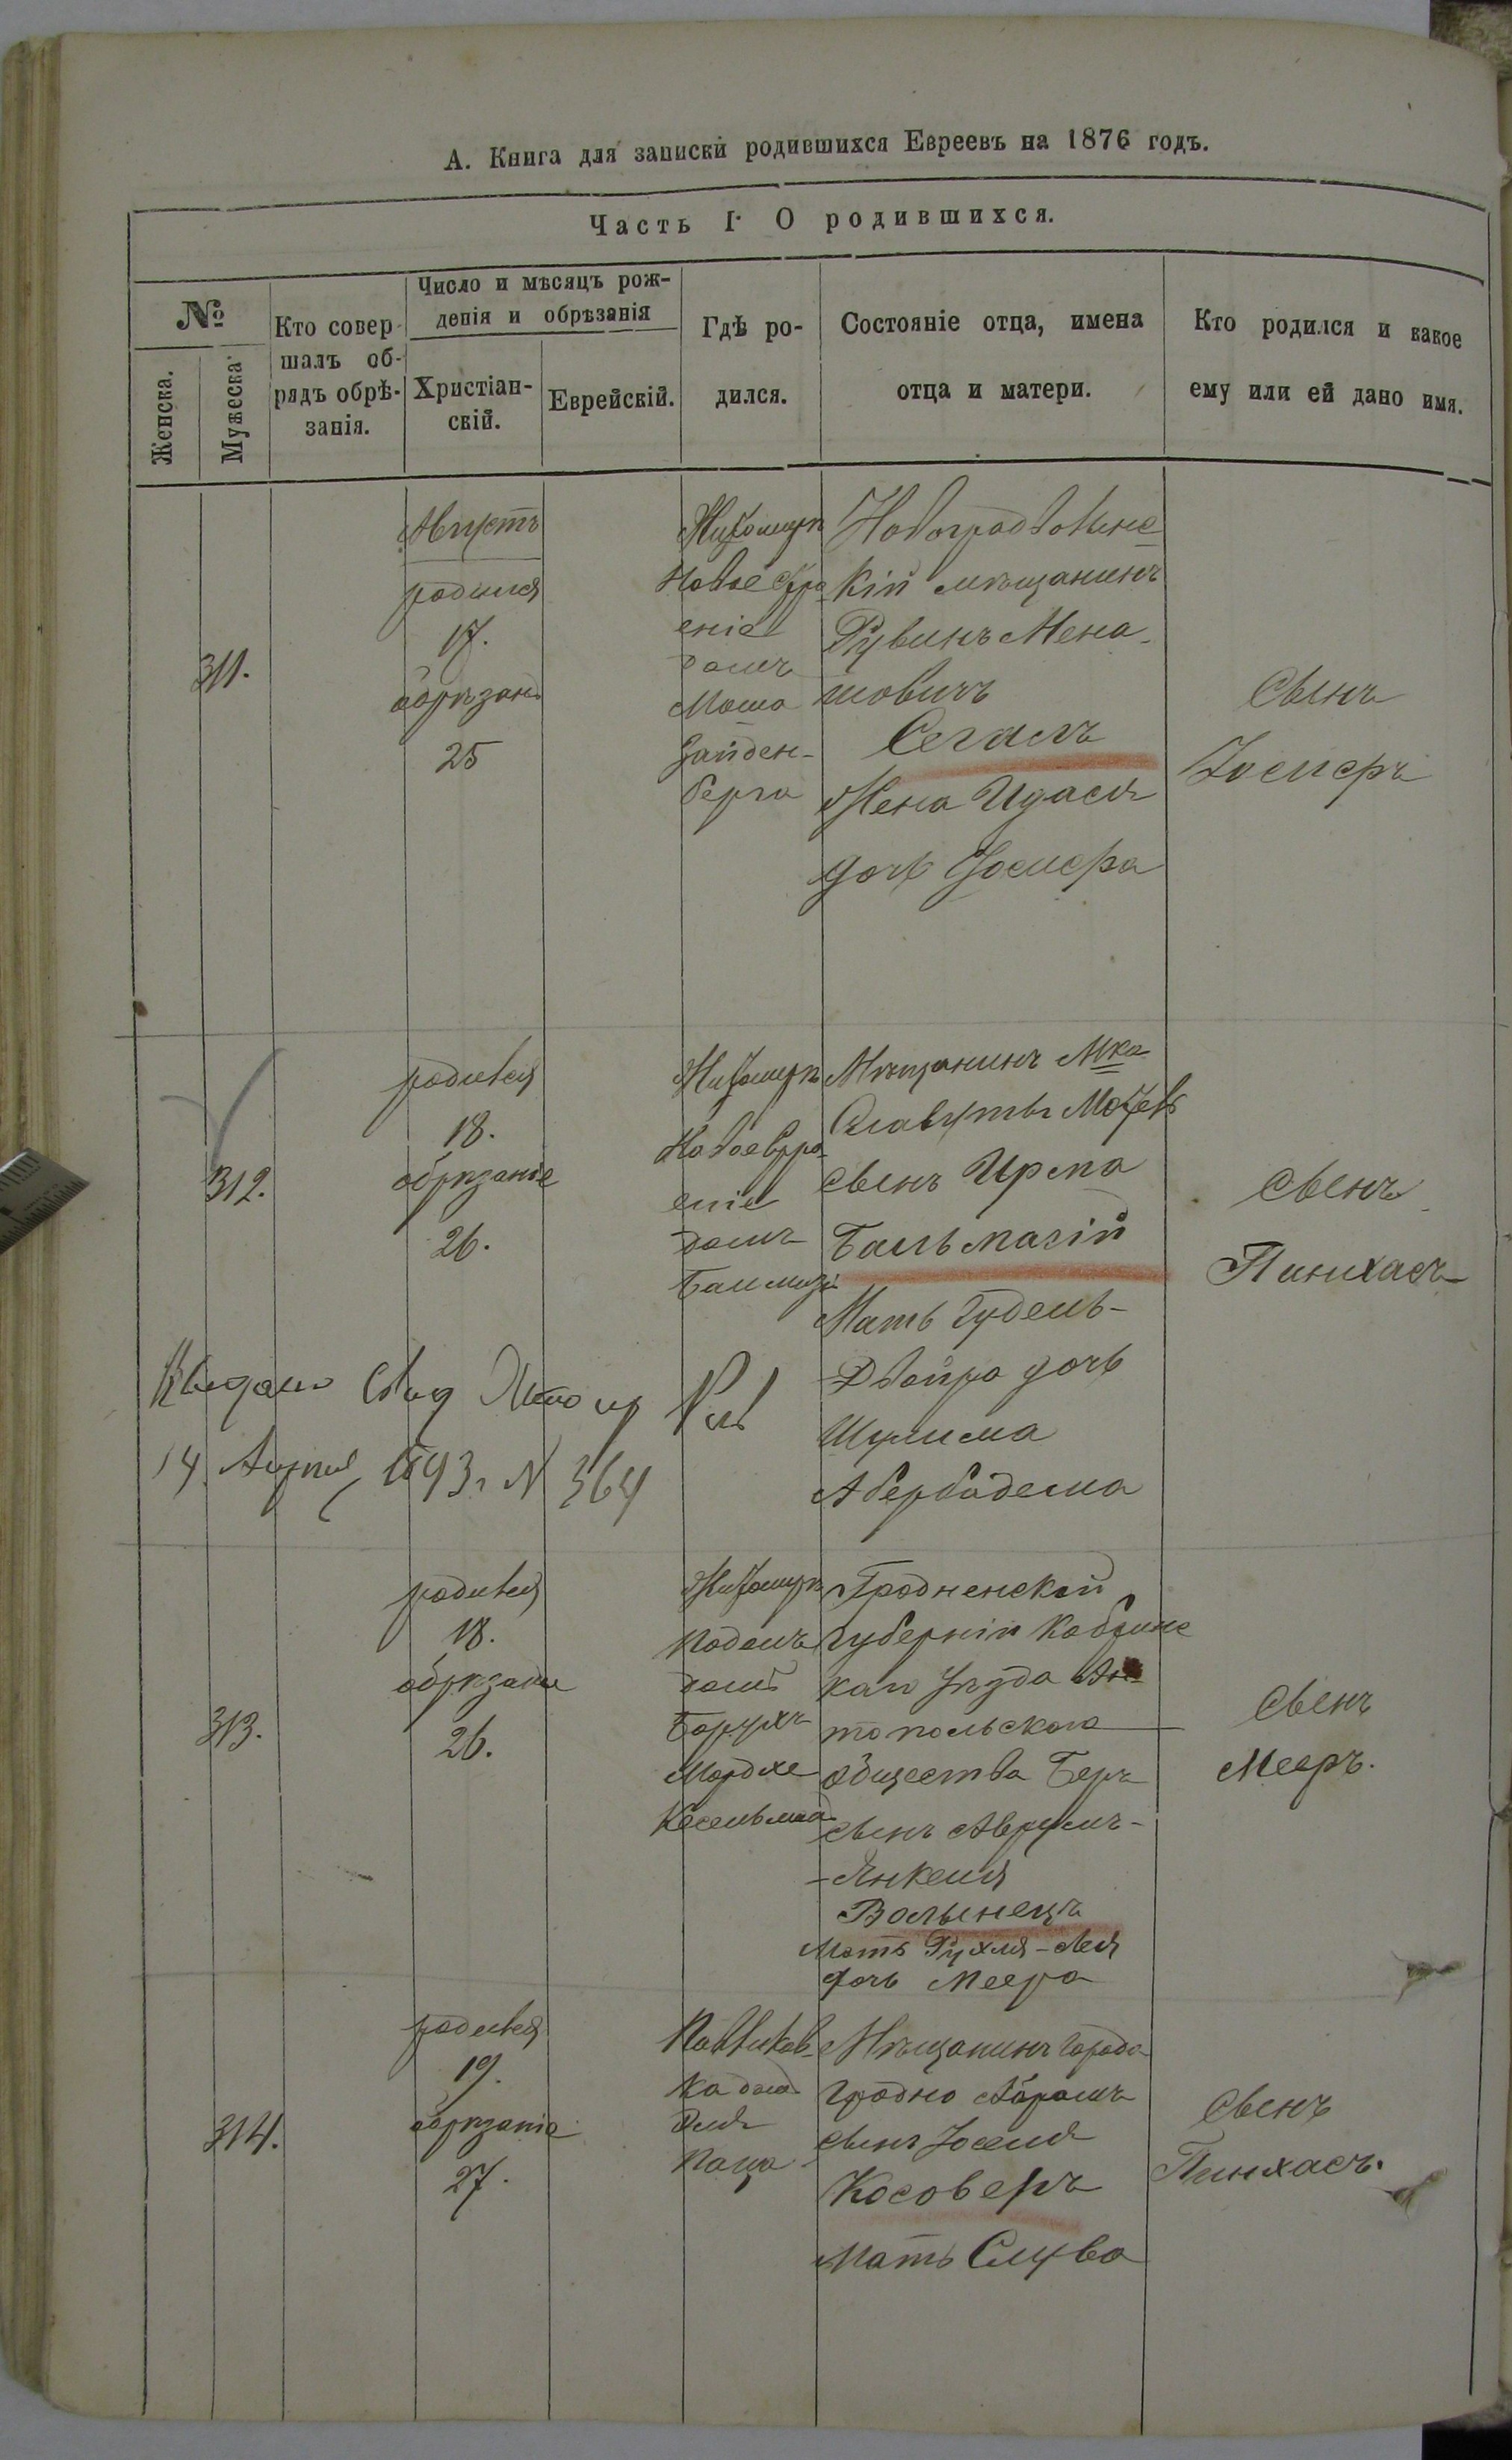 А. Книга для записки родившихся Евреевъ на 1876 годъ.
Часть I О родившихся.
№
Женска.
Мужеска
Кто совер-
шалъ об-
рядъ обрѣ-
занія.
Число и мѣсяцъ рож-
денія и обрѣзанія
Христіан-
скій.
Еврейскій.
Гдѣ ро-
дился.
Состояніе отца, имена
отца и матери.
Кто родился и какое
ему или ей дано имя.
311.
Августъ
родился
17.
обрѣзанъ
25
Житомиръ
Новое
еніе
домъ
Мошка
Зайден-
берга
Новоградволинс
кій мѣщанинъ
Рувинъ Мена-
шовичъ
Сегалъ
Жена
дочь
Сынъ
312.
родився
18.
обрѣзаніе
26.
Житомиръ
Новое
еніе
домъ
Мѣщанинъ Мка
Славуты
сынъ
Мать Гудель-
Двойра дочь
Шулима
Сынъ
Пинхасъ
Выдано
14 1893 г N 364
313.
родився
18.
обрѣзаніе
26.
Житомиръ
Подолъ
домъ
Борухъ
Мордхе
Кесельмана
Гродненской
губерніи Кобринс
каго уѣзда Ан-
топольскаго
общества Беръ
сынъ Аврумъ-
-Янкеля
Волынецъ
Мать Рухля-Лея
дочь Меера
Сынъ
Мееръ.
314.
родився
19.
обрѣзаніе
27.
Павликов-
ка домъ
Каца
Мѣщанинъ города
Гродно Абрамъ
сынъ Іоселя
Косоверъ
Мать Слува
Сынъ
Пинхасъ.